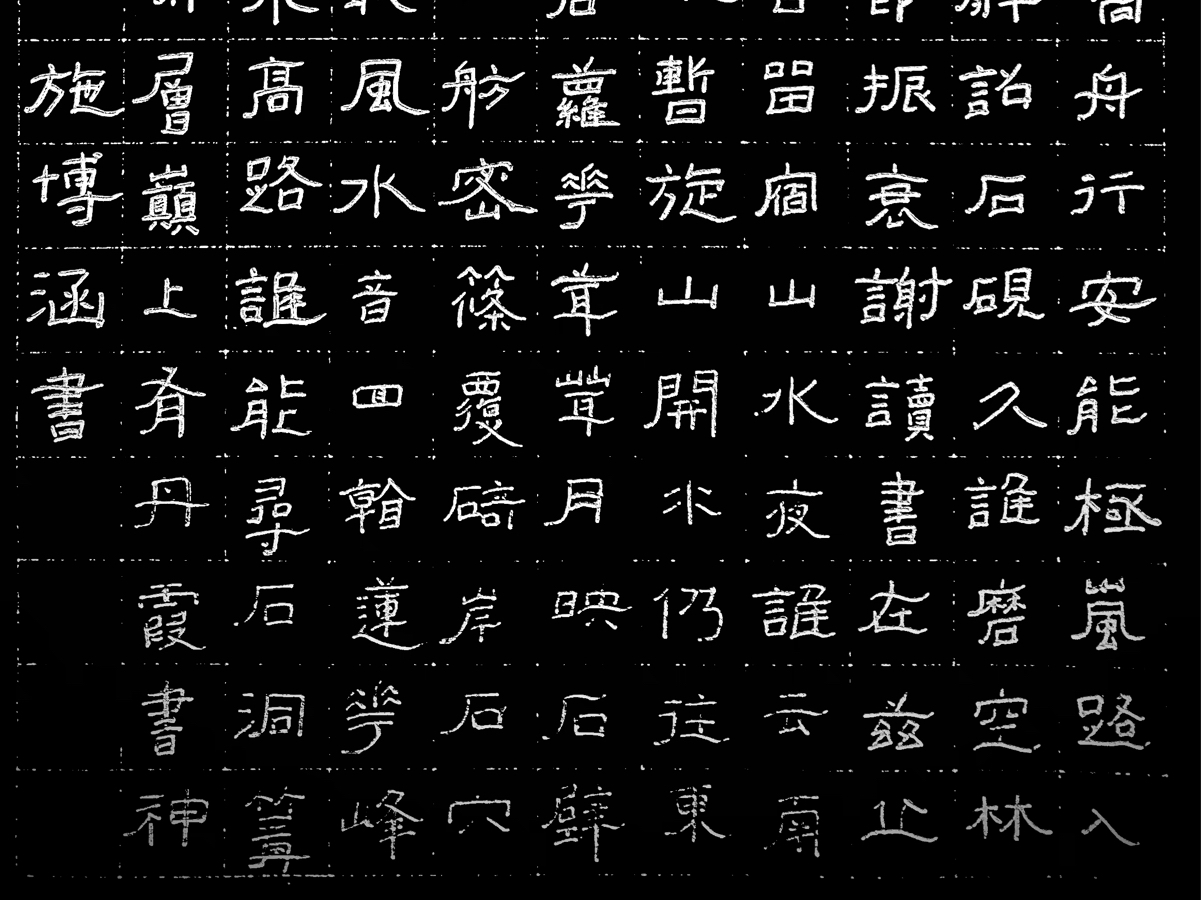 舟行安能極嵐路入
詔石硯久誰磨空林
振衰謝讀書在茲止
畱宿山水夜誰云南
暫旋山開水仍往東
蘿華茸茸月映石壁
舫密篠覆碕岸石穴
風水音回蓮華峰
高路誰能尋石洞篝
層巔上有丹霞書神
施博涵書